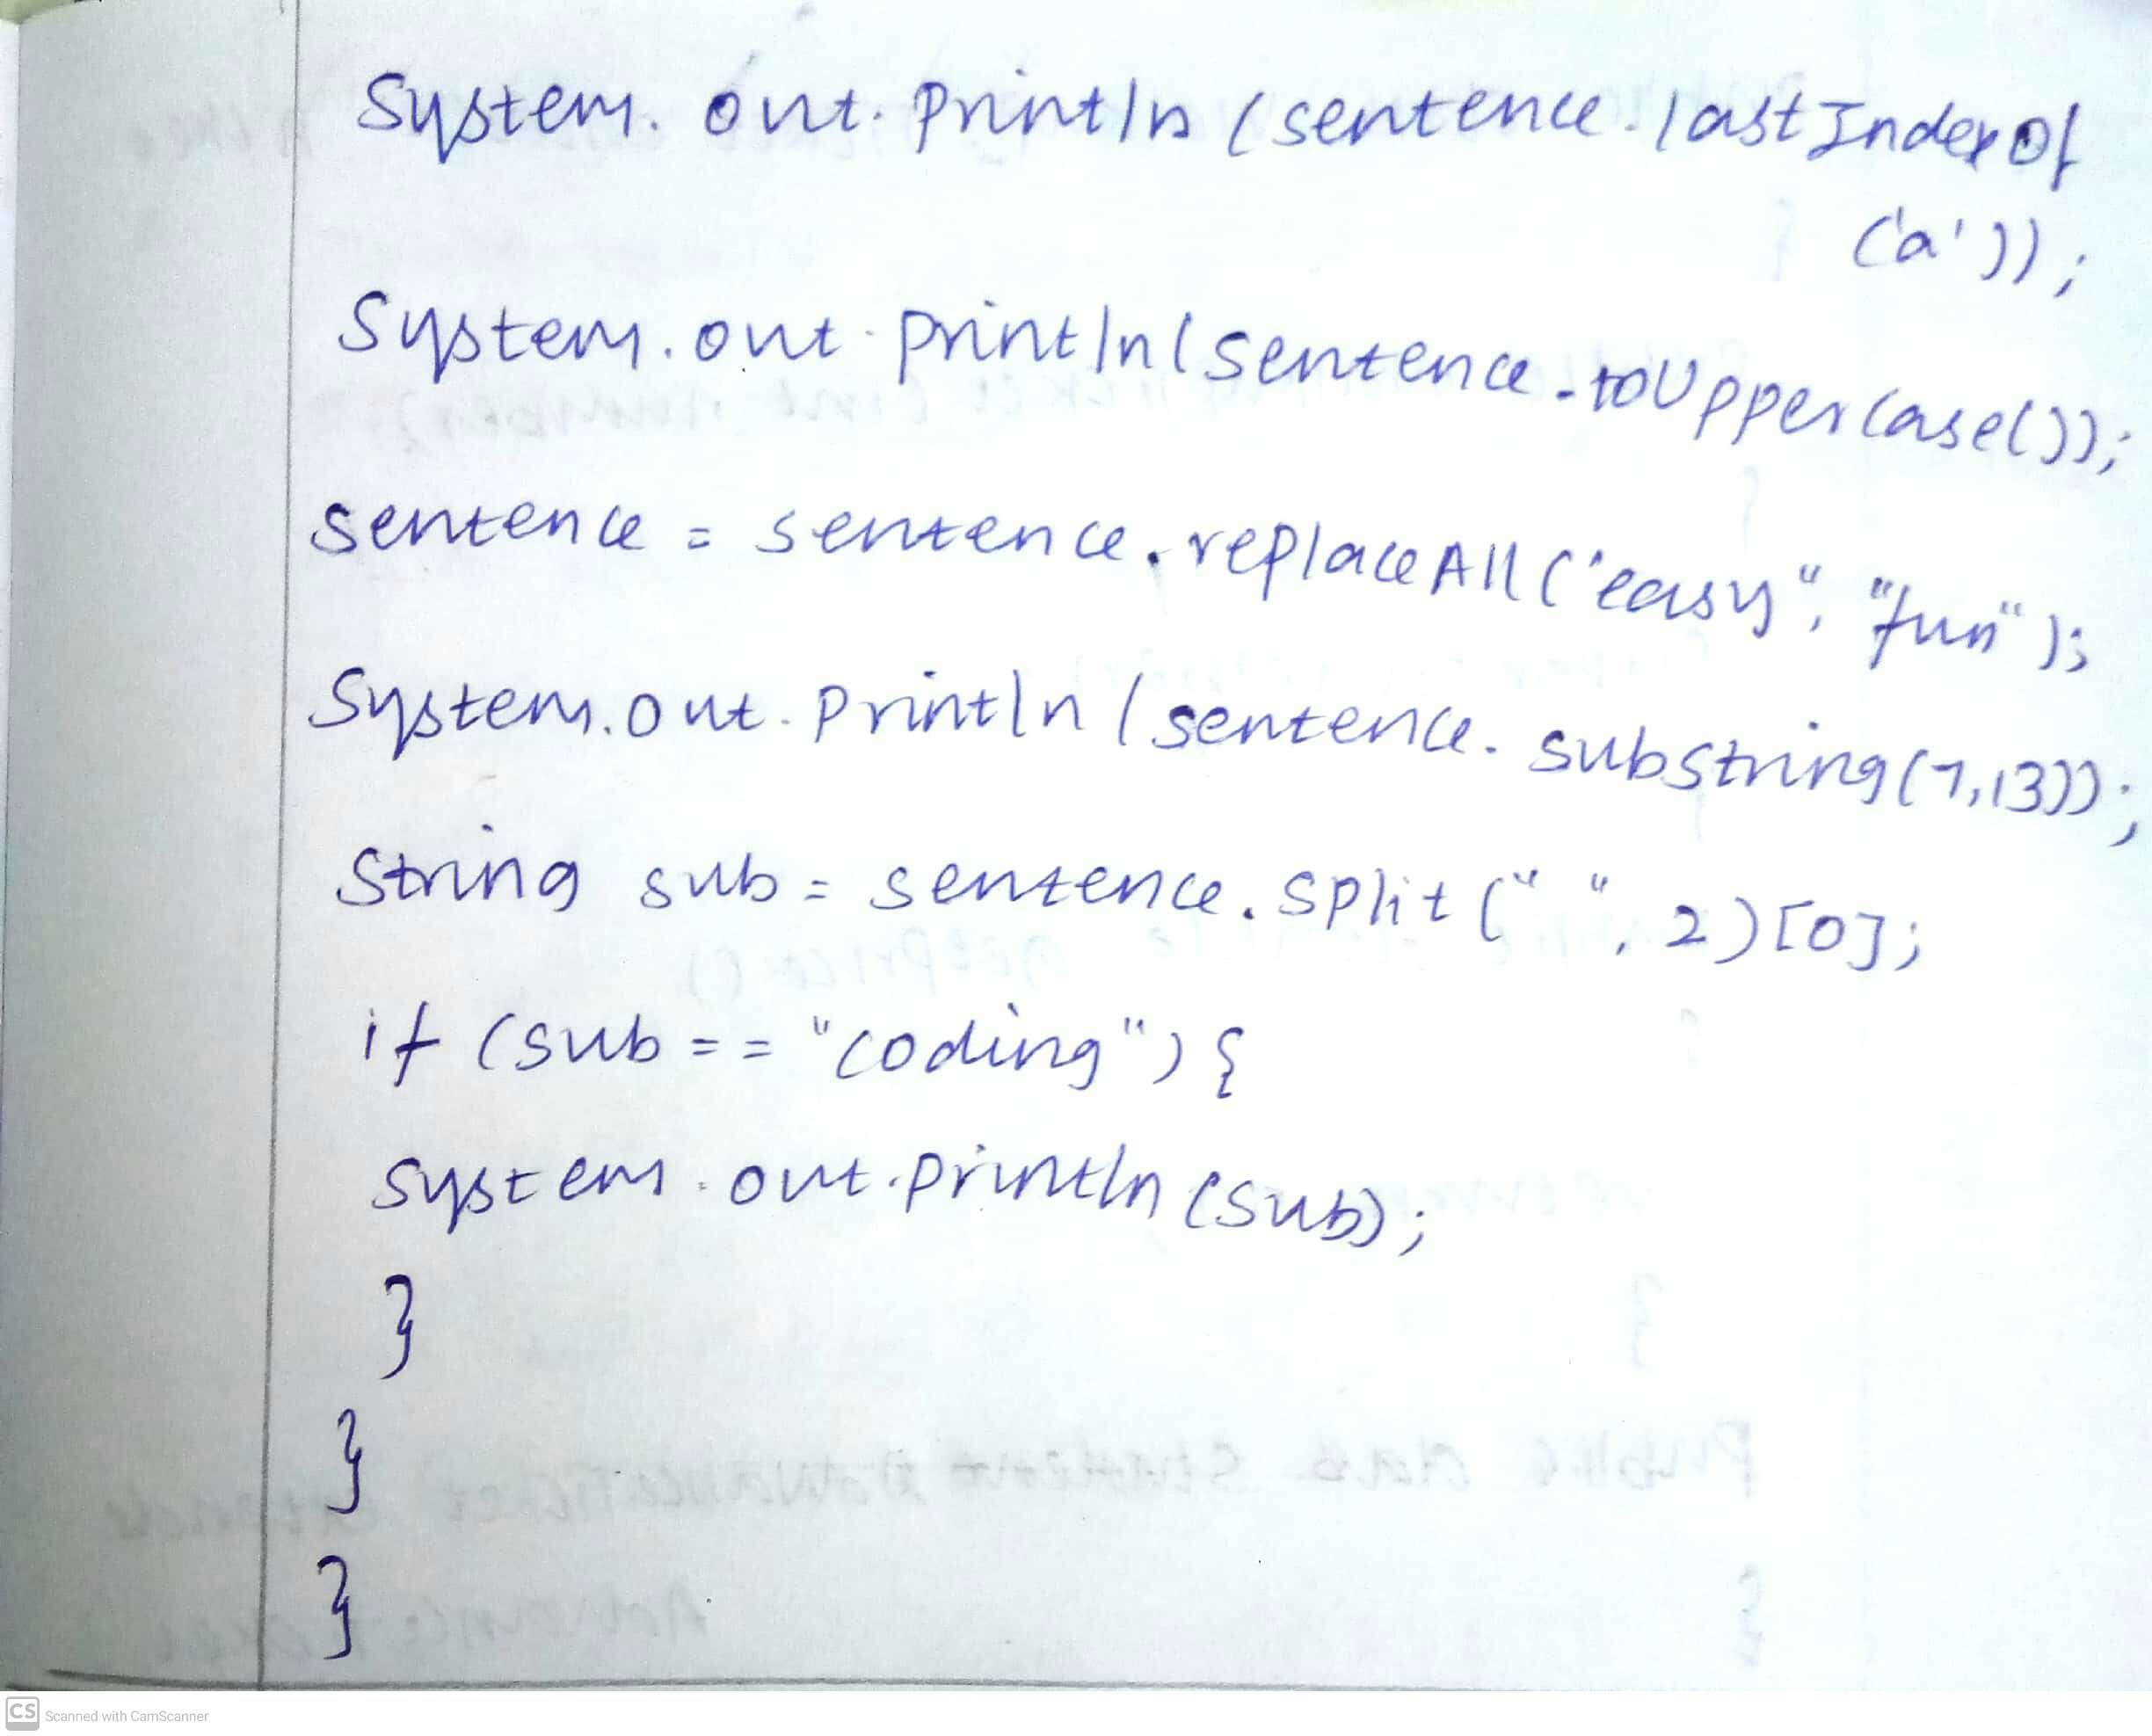 System.out.println (sentence.lastIndexOf
('a'));
System.out.println(sentence.toUpperCase());
sentence = sentence.replaceAll("easy", "fun");
System.out.println(sentence.substring(7,13));
String sub = sentence.split(" ", 2)[0];
if (sub == "coding") {
System.out.println(sub);
}
}
}
CS Scanned with CamScanner